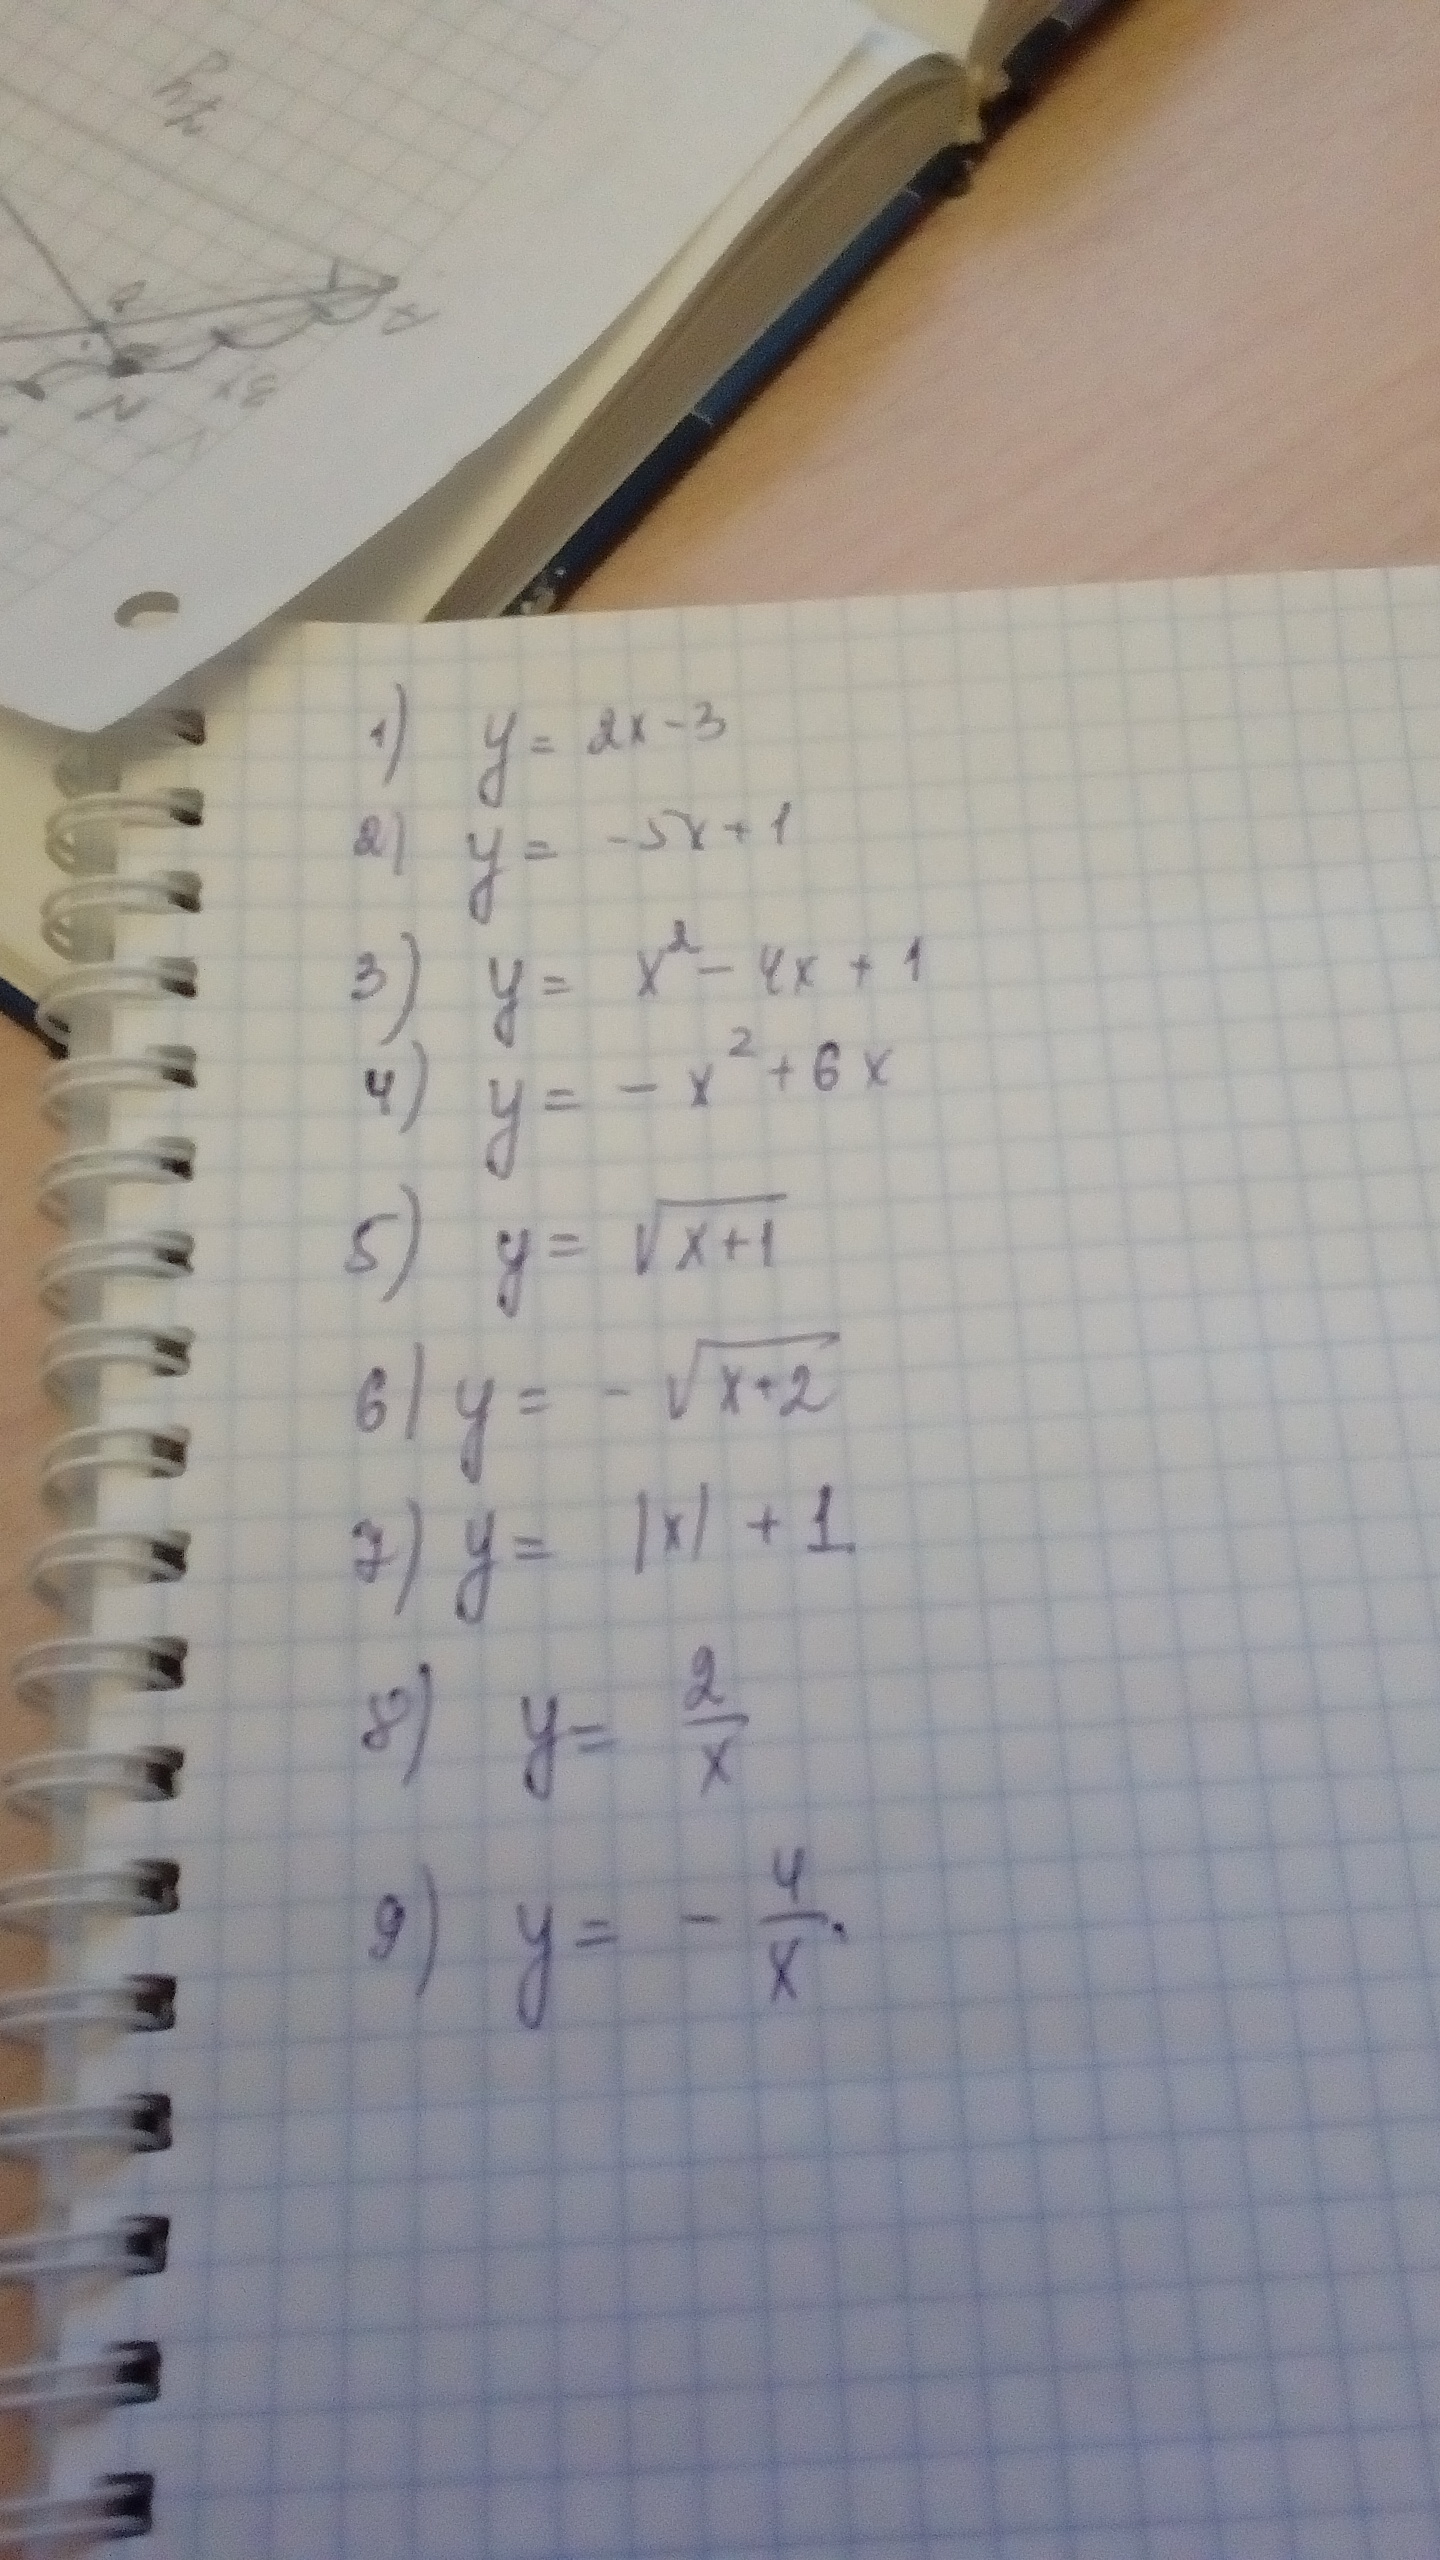 1) y = 2x - 3
2) y = -5x + 1
3) y = x² - 4x + 1
4) y = - x² + 6x
5) y = √(x+1)
6) y = - √(x+2)
7) y = |x| + 1
8) y = 2/x
9) y = - 4/x.